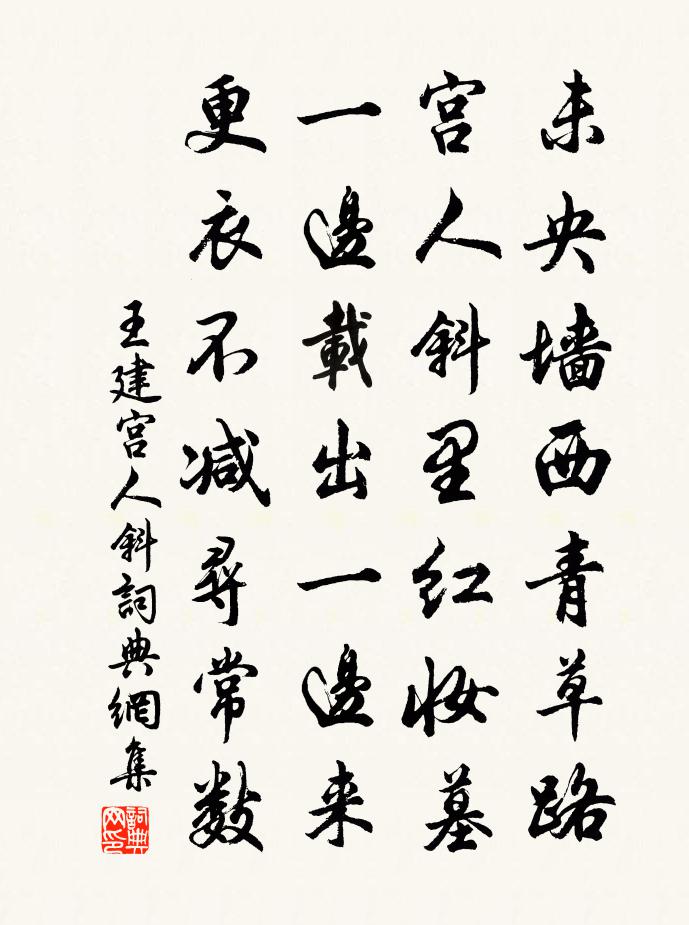 未央墙西青草路
宫人斜里红妆墓
一邊載出一邊来
更衣不减尋常数
王建宫人斜詞典網集
詞典网印